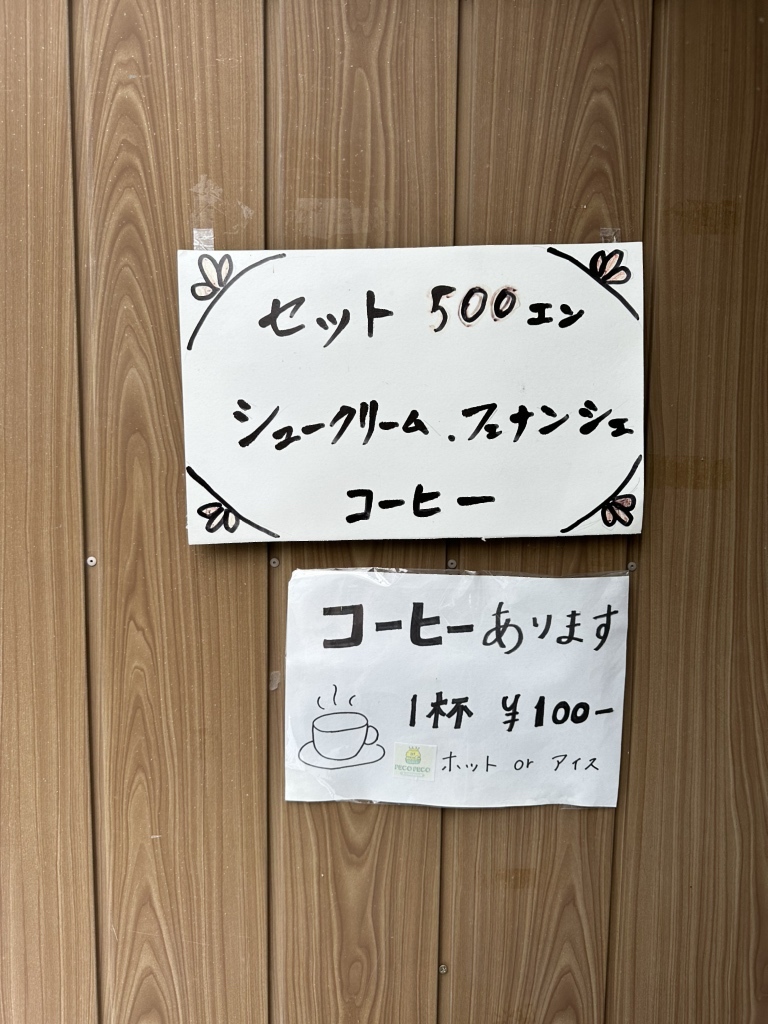 セット 500エン
シュークリーム.フェナンシェ
コーヒー
コーヒーあります
1杯 ¥100-
PECO PECO
ホット or アイス